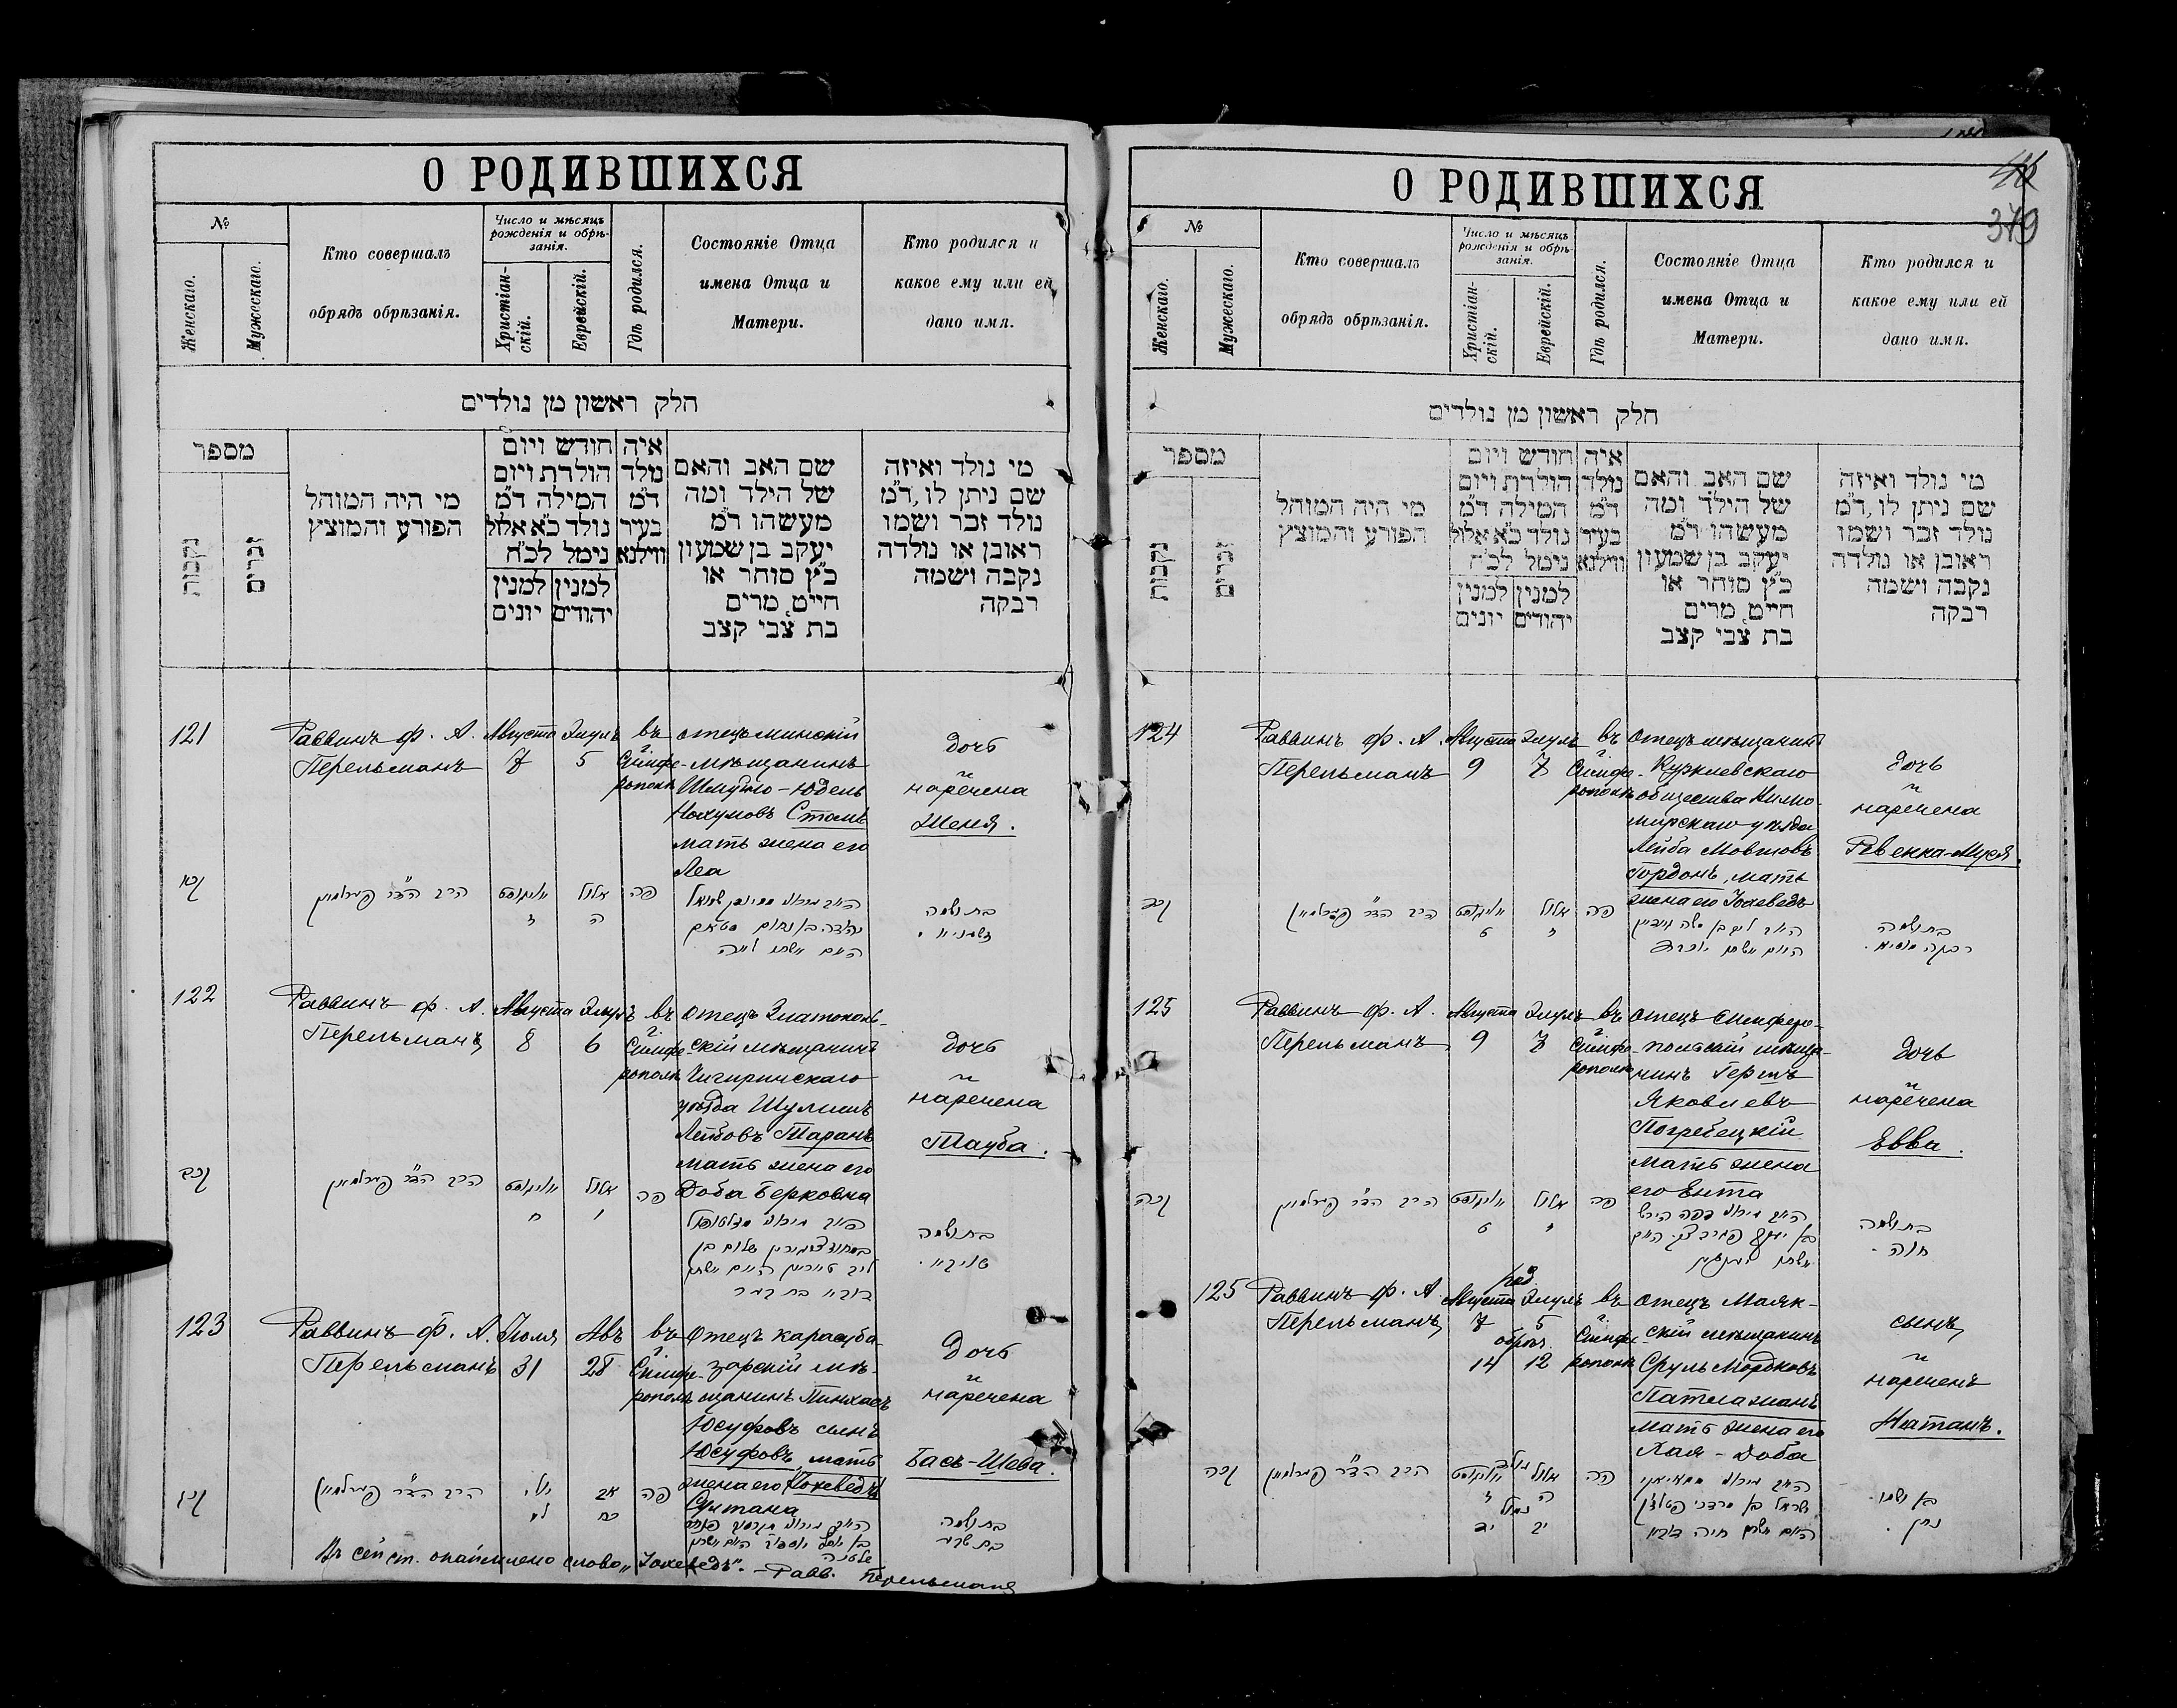 О РОДИВШИХСЯ
№
Женскаго.
Мужескаго.
Кто совершалъ
обрядъ обрѣзанія.
Число и мѣсяцъ
рожденія и обрѣ-
занія.
Христіан-
скій.
Еврейскій.
Гдѣ родился.
Состояніе Отца
имена Отца и
Матери.
Кто родился и
какое ему или ей
дано имя.
חלק ראשון מן נולדים
מספר
נקבות
זכרים
מי היה המוהל
הפורע והמוצץ
חודש ויום
הולדת ויום
המילה ד"מ
נולד כ"א אלול
נימל לכ"ח
למנין יהודים
למנין יונים
איה
נולד
ד"מ
בעיר
ווילנא
שם האב והאם
של הילד ומה
מעשהו ד"מ
יעקב בן שמעון
כ"ץ סוחר או
חייט, מרים
בת צבי קצב
מי נולד ואיזה
שם ניתן לו, ד"מ
נולד זכר ושמו
ראובן או נולדה
נקבה ושמה
רבקה
121
Раввинъ Ф. А.
Перельманъ
Августа
7
Элулъ
5
въ
г.
Симфе-
рополѣ
отецъ минскій
мѣщанинъ
Шмуйло-Юдель
Нохумовъ Столъ
мать жена его
Леа
дочь
и
наречена
Женя.
קכא
הרב הד"ר פערלמאן
אויגוסט
ז
אלול
ה
פה
בת ושמה
122
Раввинъ Ф. А.
Перельманъ
Августа
8
Элулъ
6
въ
г.
Симфе-
рополѣ
отецъ Златополь-
скій мѣщанинъ
Чигиринскаго
уѣзда Шулимъ
Лейбовъ Таранъ
мать жена его
Доба Берковна
дочь
и
наречена
Тауба.
קכב
הרב הד"ר פערלמאן
אויגוסט
ח
אלול
ו
פה
בת ושמה
123
Раввинъ Ф. А.
Перельманъ
Іюля
31
Авъ
28
въ
г.
Симфе-
рополѣ
отецъ карасуба-
зарскій мѣ-
щанинъ Пинхасъ
Юсуфовъ сынъ
Юсуфовъ, мать
жена его Іохеведъ
Султана
дочь
и
наречена
Басъ-Шева.
קכג
הרב הד"ר פערלמאן
יולי
לא
אב
כח
פה
בת ושמה
בת שבע
Въ сей ст. опаймлено слово „Іохеведъ“. – Равв. Перельманъ
О РОДИВШИХСЯ
379
№
Женскаго.
Мужескаго.
Кто совершалъ
обрядъ обрѣзанія.
Число и мѣсяцъ
рожденія и обрѣ-
занія.
Христіан-
скій.
Еврейскій.
Гдѣ родился.
Состояніе Отца
имена Отца и
Матери.
Кто родился и
какое ему или ей
дано имя.
חלק ראשון מן נולדים
מספר
נקבות
זכרים
מי היה המוהל
הפורע והמוצץ
חודש ויום
הולדת ויום
המילה ד"מ
נולד כ"א אלול
נימל לכ"ח
למנין יהודים
למנין יונים
איה
נולד
ד"מ
בעיר
ווילנא
שם האב והאם
של הילד ומה
מעשהו ד"מ
יעקב בן שמעון
כ"ץ סוחר או
חייט, מרים
בת צבי קצב
מי נולד ואיזה
שם ניתן לו, ד"מ
נולד זכר ושמו
ראובן או נולדה
נקבה ושמה
רבקה
124
Раввинъ Ф. А.
Перельманъ
Августа
9
Элулъ
7
въ
г.
Симфе-
рополѣ
отецъ мѣщанинъ
общества
уѣзда
Лейба Мовшовъ
Гордонъ, мать
жена его Іохеведъ
дочь
и
наречена
Ревекка-Муся.
קכד
הרב הד"ר פערלמאן
אויגוסט
ט
אלול
ז
פה
בת ושמה
רבקה מוסיא.
125
Раввинъ Ф. А.
Перельманъ
Августа
9
Элулъ
7
въ
г.
Симфе-
рополѣ
отецъ симферо-
польскій мѣща-
нинъ Гершъ
Яковлевъ
Погребецкій
мать жена
его Ента
дочь
и
наречена
Евва.
קכה
הרב הד"ר פערלמאן
אויגוסט
ט
אלול
ז
פה
בת ושמה
חוה.
125
Раввинъ Ф. А.
Перельманъ
род.
Августа
7
Элулъ
5
обрѣз.
14
12
въ
г.
Симфе-
рополѣ
отецъ Маяк-
скій мѣщанинъ
Сруль Мордковъ
Патлажанъ
мать жена его
Хая-Доба
сынъ
и
нареченъ
Натанъ.
קכה
הרב הד"ר פערלמאן
נולד
אויגוסט
ז
אלול
ה
נימול
יד
יב
פה
בן ושמו
נתן.